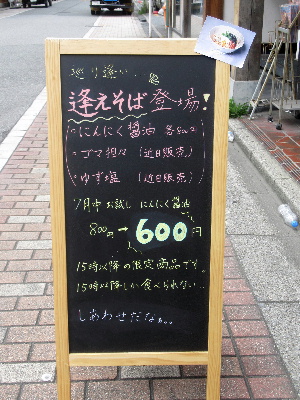 巡り逢い、
逢えそば登場!
・にんにく醤油 各800円
・ゴマ担々 (近日販売)
・ゆず塩 (近日販売)
7月中お試し にんにく醤油
800円→600円
15時以降の限定商品です。
15時以降しか食べられない…
しあわせだなぁ。